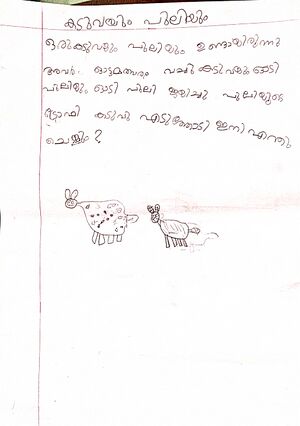 കടുവയും പുലിയും
ഒരു കടുവയും പുലിയും ഉണ്ടായിരുന്നു
അവർ ഓട്ടമത്സരം വച്ചു കടുവയും ഓടി
പുലിയും ഓടി പുലി ജയിച്ചു പുലിയുടെ
ട്രോഫി കടുവ എടുത്തോടി ഇനി എന്തു
ചെയ്യും?